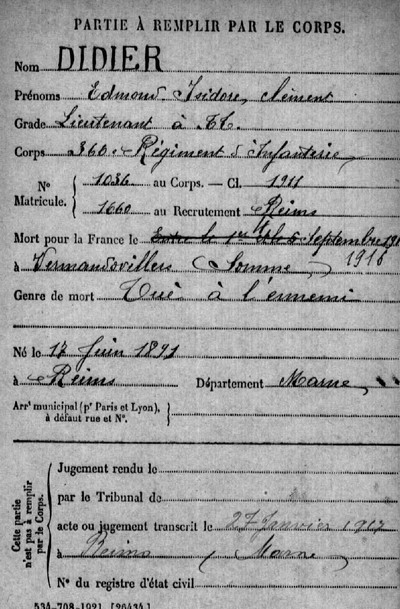 PARTIE À REMPLIR PAR LE CORPS.
Nom DIDIER
Prénoms Edmond Isidore, Clément
Grade Lieutenant à T.T.
Corps 360e Régiment d'Infanterie
No Matricule. 1036 au Corps. — Cl. 1911
1660 au Recrutement Reims
Mort pour la France le Septembre 1916
à Vermandovillers (Somme)
Genre de mort Tué à l'ennemi
Né le 17 Juin 1891
à Reims Département Marne
Arrt municipal (pr Paris et Lyon), à défaut rue et No.
Cette partie n'est pas à remplir par le Corps.
Jugement rendu le
par le Tribunal de
acte ou jugement transcrit le 27 Janvier 1917
à Reims (Marne)
No du registre d'état civil
534-708-1921. [26434.]